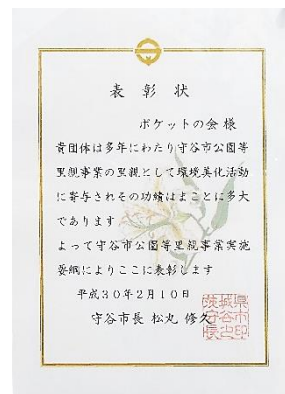 表彰状
ポケットの会 様
貴団体は多年にわたり守谷市公園等
里親事業の里親として環境美化活動
に寄与されその功績はまことに多大
であります
よって守谷市公園等里親事業実施
要綱によりここに表彰します
平成30年2月10日
守谷市長 松丸 修久